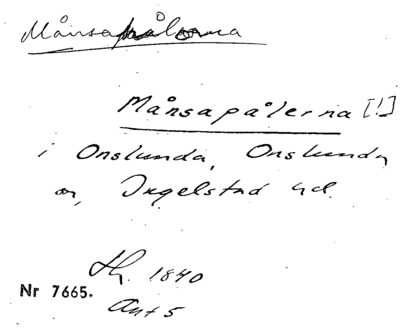 Månsapålarna
Månsapålerna [!]
i Onslunda, Onslunda
sn, Ingelstad hd.
Hz. 1840
Nr 7665.
Ant 5